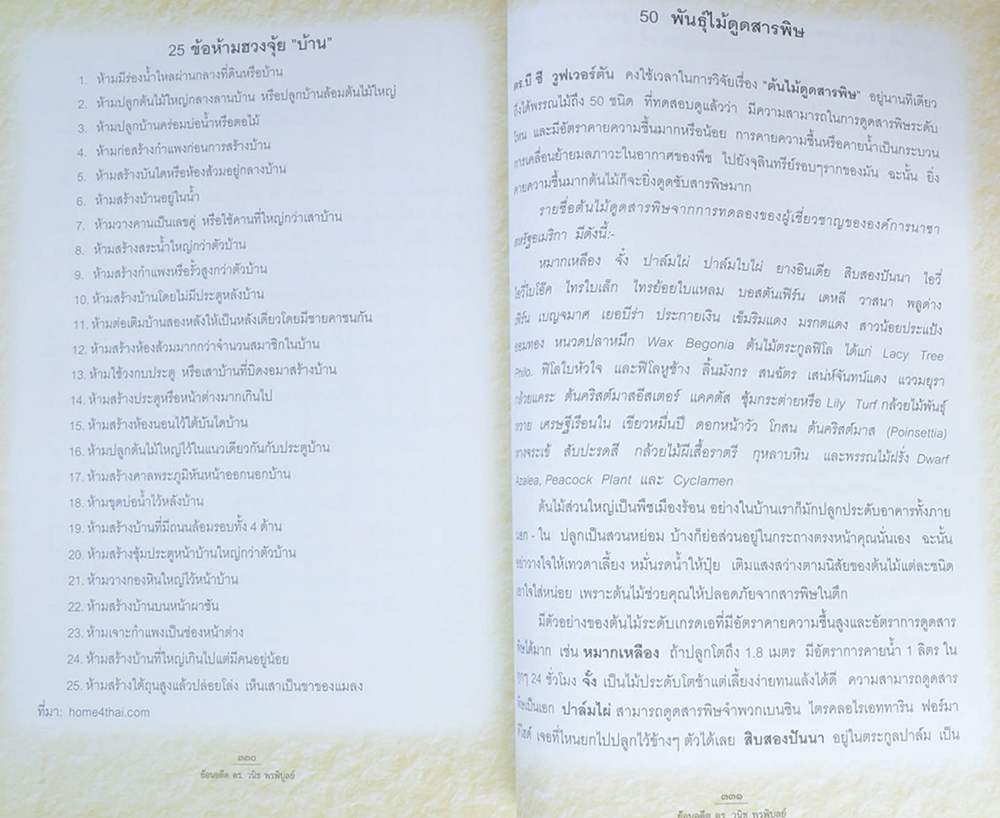 25 ข้อห้ามฮวงจุ้ย "บ้าน"
1. ห้ามมีร่องน้ำไหลผ่านกลางที่ดินหรือบ้าน
2. ห้ามปลูกต้นไม้ใหญ่กลางลานบ้าน หรือปลูกบ้านล้อมต้นไม้ใหญ่
3. ห้ามปลูกบ้านคร่อมบ่อน้ำหรือตอไม้
4. ห้ามก่อสร้างกำแพงก่อนการสร้างบ้าน
5. ห้ามสร้างบันไดหรือห้องส้วมอยู่กลางบ้าน
6. ห้ามสร้างบ้านอยู่ในน้ำ
7. ห้ามวางคานเป็นเลขคู่ หรือใช้คานที่ใหญ่กว่าเสาบ้าน
8. ห้ามสร้างสระน้ำใหญ่กว่าตัวบ้าน
9. ห้ามสร้างกำแพงหรือรั้วสูงกว่าตัวบ้าน
10. ห้ามสร้างบ้านโดยไม่มีประตูหลังบ้าน
11. ห้ามต่อเติมบ้านสองหลังให้เป็นหลังเดียวโดยมีชายคาชนกัน
12. ห้ามสร้างห้องส้วมมากกว่าจำนวนสมาชิกในบ้าน
13. ห้ามใช้วงกบประตู หรือเสาบ้านที่บิดงอมาสร้างบ้าน
14. ห้ามสร้างประตูหรือหน้าต่างมากเกินไป
15. ห้ามสร้างห้องนอนไว้ใต้บันไดบ้าน
16. ห้ามปลูกต้นไม้ใหญ่ไว้ในแนวเดียวกันกับประตูบ้าน
17. ห้ามสร้างศาลพระภูมิหันหน้าออกนอกบ้าน
18. ห้ามขุดบ่อน้ำไว้หลังบ้าน
19. ห้ามสร้างบ้านที่มีถนนล้อมรอบทั้ง 4 ด้าน
20. ห้ามสร้างซุ้มประตูหน้าบ้านใหญ่กว่าตัวบ้าน
21. ห้ามวางกองหินใหญ่ไว้หน้าบ้าน
22. ห้ามสร้างบ้านบนหน้าผาชัน
23. ห้ามเจาะกำแพงเป็นช่องหน้าต่าง
24. ห้ามสร้างบ้านที่ใหญ่เกินไปแต่มีคนอยู่น้อย
25. ห้ามสร้างใต้ถุนสูงแล้วปล่อยโล่ง เห็นเสาเป็นขาของแมลง
ที่มา: home4thai.com
๓๓๐
ย้อนอดีต ดร. วนิช พรพิบูลย์
50 พันธุ์ไม้ดูดสารพิษ
ดร.บี ซี วูฟเวอร์ตัน คงใช้เวลาในการวิจัยเรื่อง "ต้นไม้ดูดสารพิษ" อยู่นานทีเดียว
ถึงได้พรรณไม้ถึง 50 ชนิด ที่ทดสอบดูแล้วว่า มีความสามารถในการดูดสารพิษระดับ
ไหน และมีอัตราคายความชื้นมากหรือน้อย การคายความชื้นหรือคายน้ำเป็นกระบวน
การเคลื่อนย้ายมลภาวะในอากาศของพืช ไปยังจุลินทรีย์รอบๆรากของมัน ฉะนั้น ยิ่ง
คายความชื้นมากต้นไม้ก็จะยิ่งดูดซับสารพิษมาก
รายชื่อต้นไม้ดูดสารพิษจากการทดลองของผู้เชี่ยวชาญขององค์การนาซา
สหรัฐอเมริกา มีดังนี้:-
หมากเหลือง จั๋ง ปาล์มไผ่ ปาล์มใบไผ่ ยางอินเดีย สิบสองปันนา ไอวี่
ไอวี่ใบโอ๊ค ไทรใบเล็ก ไทรย้อยใบแหลม บอสตันเฟิร์น เดหลี วาสนา พลูด่าง
เฟิร์น เบญจมาศ เยอบีร่า ประกายเงิน เข็มริมแดง มรกตแดง สาวน้อยประแป้ง
ออมทอง หนวดปลาหมึก Wax Begonia ต้นไม้ตระกูลฟิโล ได้แก่ Lacy Tree
Philo. ฟิโลใบหัวใจ และฟิโลหูช้าง ลิ้นมังกร สนฉัตร เสน่ห์จันทน์แดง แววมยุรา
กล้วยแคระ ต้นคริสต์มาสอีสเตอร์ แคคตัส ซุ้มกระต่ายหรือ Lily Turf กล้วยไม้พันธุ์
หวาย เศรษฐีเรือนใน เขียวหมื่นปี ดอกหน้าวัว โกสน ต้นคริสต์มาส (Poinsettia)
หางจระเข้ สับปะรดสี กล้วยไม้ผีเสื้อราตรี กุหลาบหิน และพรรณไม้ฝรั่ง Dwarf
Azalea, Peacock Plant และ Cyclamen
ต้นไม้ส่วนใหญ่เป็นพืชเมืองร้อน อย่างในบ้านเราก็มักปลูกประดับอาคารทั้งภาย
นอก - ใน ปลูกเป็นสวนหย่อม บ้างก็ย่อส่วนอยู่ในกระถางตรงหน้าคุณนั่นเอง ฉะนั้น
อย่าวางใจให้เทวดาเลี้ยง หมั่นรดน้ำให้ปุ๋ย เติมแสงสว่างตามนิสัยของต้นไม้แต่ละชนิด
เอาใจใส่หน่อย เพราะต้นไม้ช่วยคุณให้ปลอดภัยจากสารพิษในตึก
มีตัวอย่างของต้นไม้ระดับเกรดเอที่มีอัตราคายความชื้นสูงและอัตราการดูดสาร
พิษได้มาก เช่น หมากเหลือง ถ้าปลูกโตถึง 1.8 เมตร มีอัตราการคายน้ำ 1 ลิตร ใน
ทุกๆ 24 ชั่วโมง จั๋ง เป็นไม้ประดับโตช้าแต่เลี้ยงง่ายทนแล้งได้ดี ความสามารถดูดสาร
พิษเป็นเอก ปาล์มไผ่ สามารถดูดสารพิษจำพวกเบนซิน ไตรคลอไรเอททารีน ฟอร์มา
ดีไฮด์ เจอที่ไหนยกไปปลูกไว้ข้างๆ ตัวได้เลย สิบสองปันนา อยู่ในตระกูลปาล์ม เป็น
๓๓๑
ย้อนอดีต ดร. วนิช พรพิบูลย์